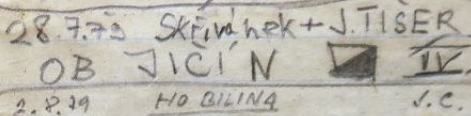 28.7.79 Skřivánek + J. TIŠER
OB JIČÍN IV.
2.8.79 HO BILINA V.C.